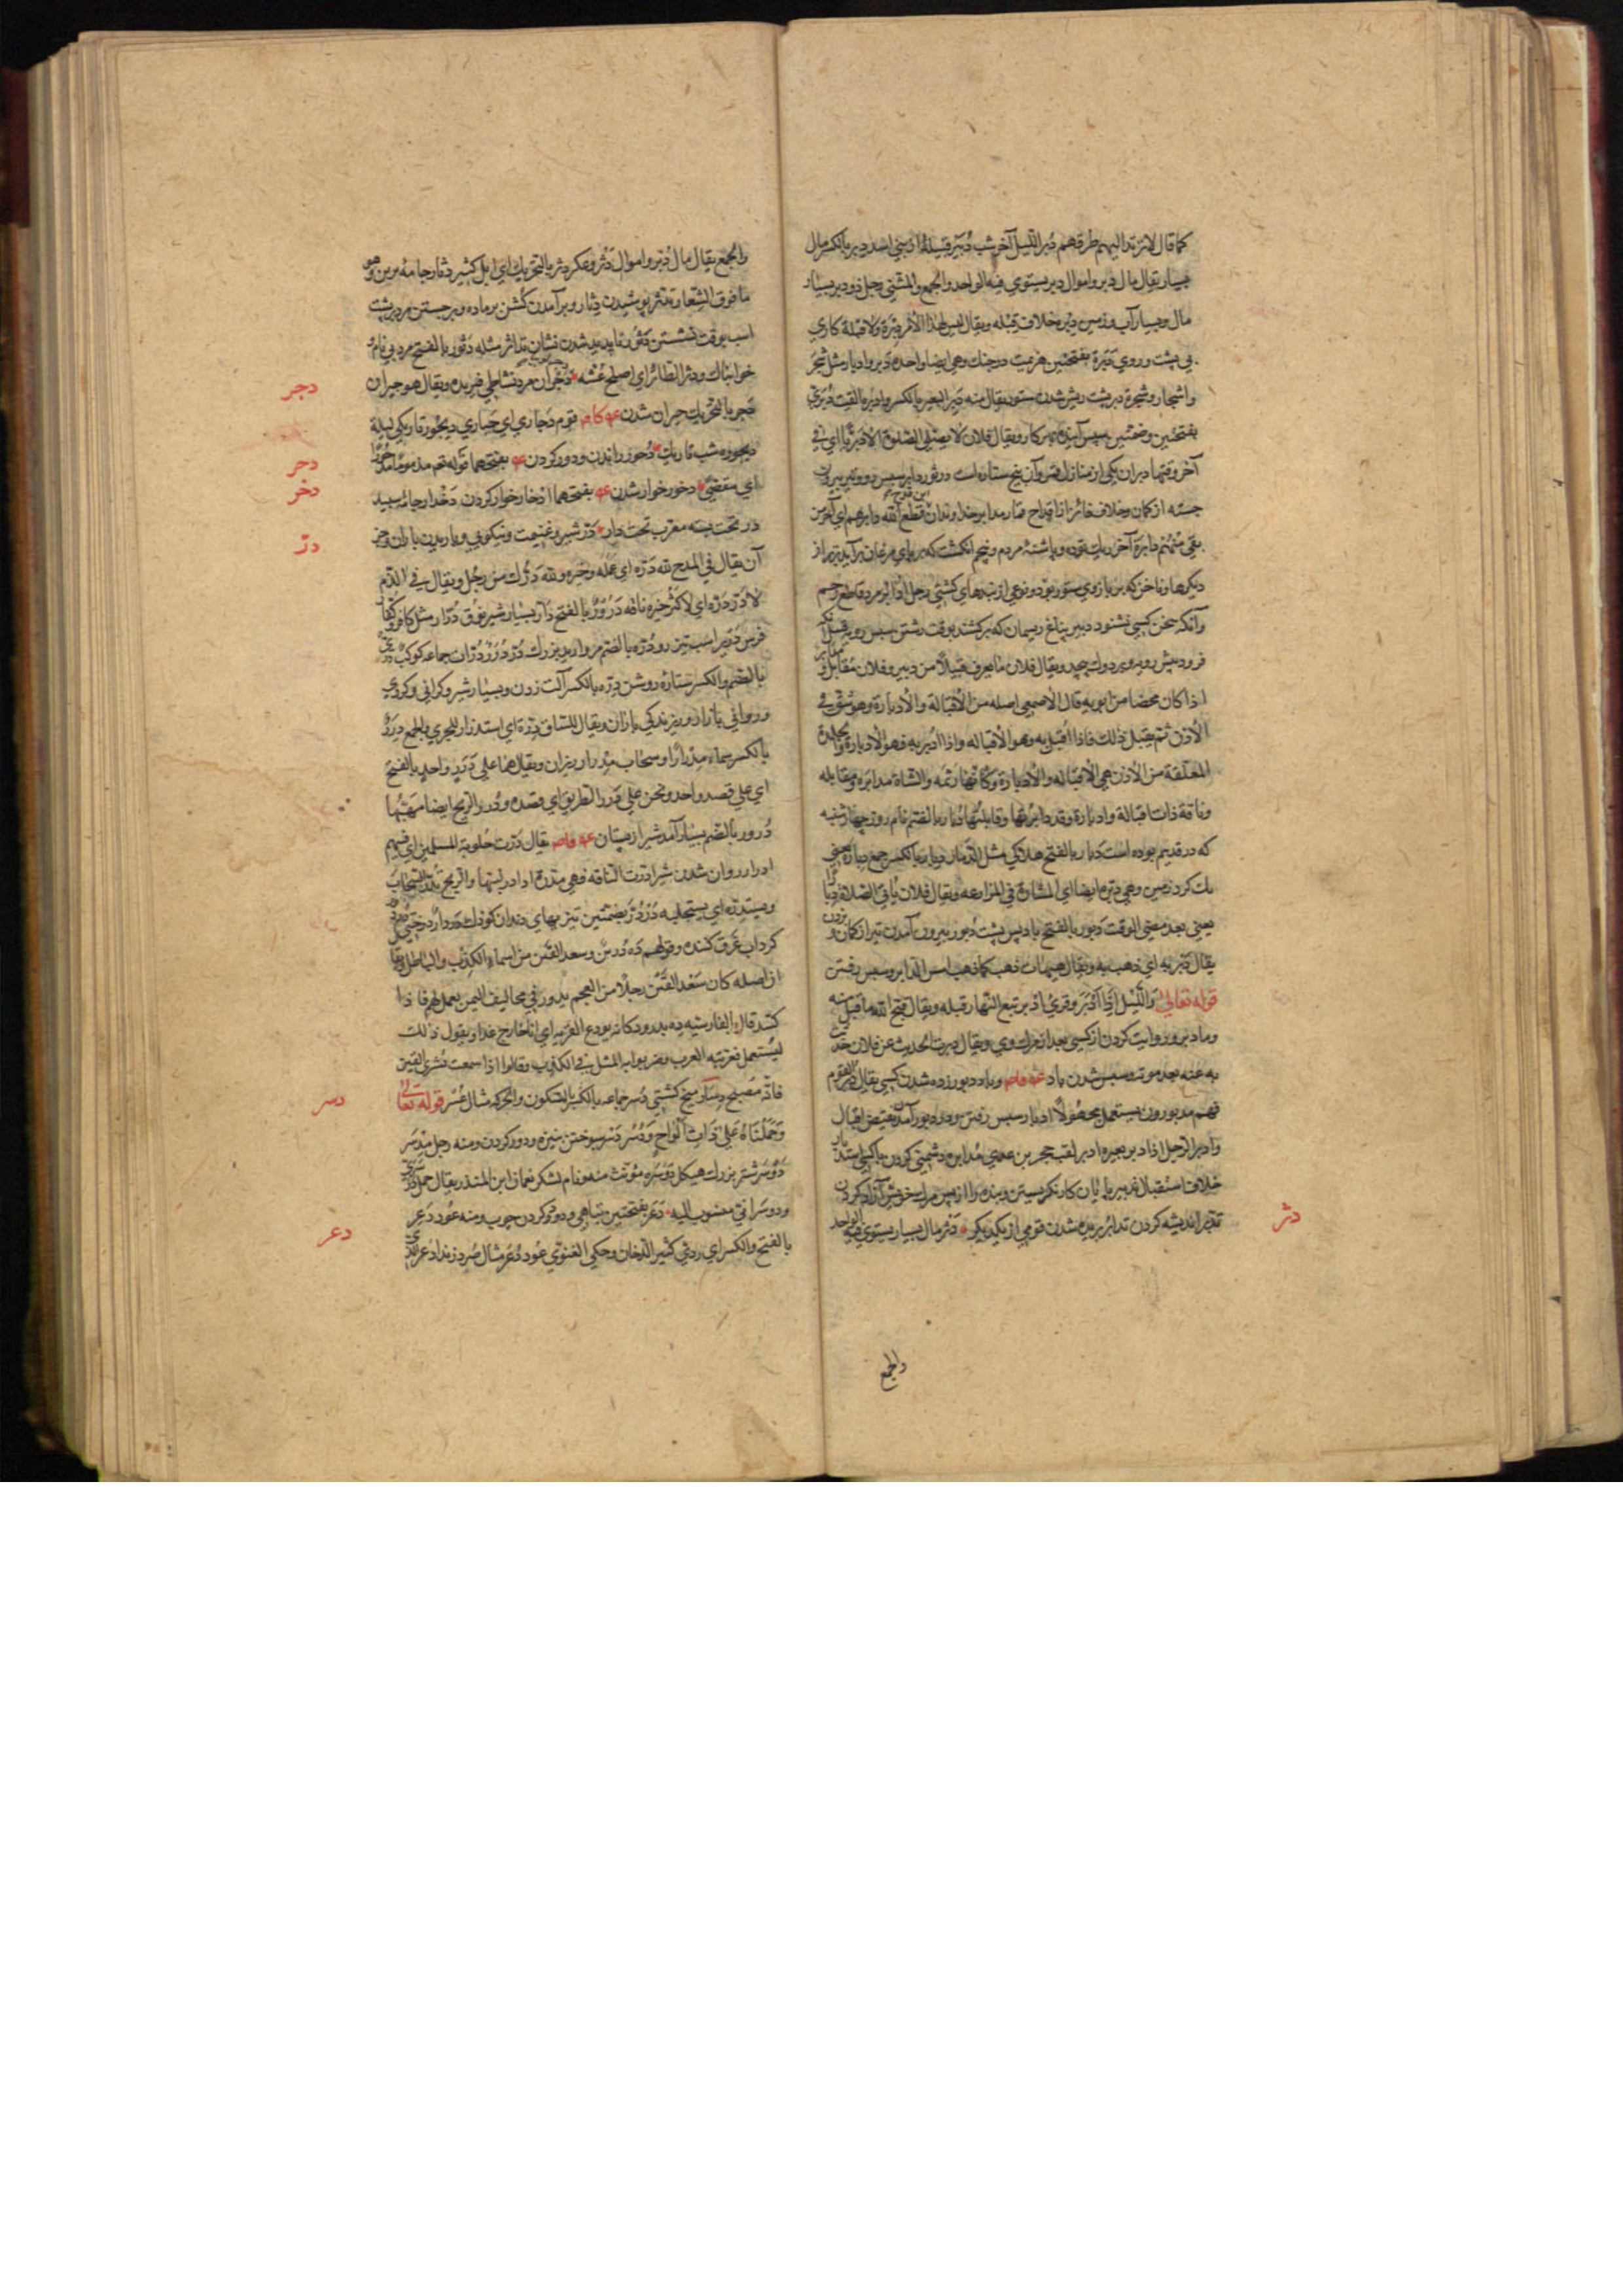 كما قال لا يرتد اليهم طرفهم دبر الليل آخر شب دبير قبيلة از بني اسد دبر بالكسر مال
بسيار يقال مال دبر واموال دبر يستوي فيه الواحد والجمع والمثني رجل ذو دبر بسيار
مال وبسيار آب وزمين دبره خلاف قبله ويقال ليس لهذا الامر دبرة ولا قبلة كاري
بي پشت وروي دبرة بفتحتين هزيمت در جنك وهي ايضا واحدة دبر وادبار مثل شجر
واشجار وشجرة دبر پشت ريش شدن ستور يقال منه دبر البعير بالكسر وادبره القتب دبري
بفتحتين سپس آينده هر كار ويقال فلان لا يصلي الصلوة الا دبريا اي في
آخر وقتها دبران يكي از منازل قمر وآن پنج ستاره است در ثور دابر سپس رو وتير بيرون
جسته از كمان وخلاف فائز از اقداح صار مدابر خداوند آن قطع الله دابرهم اي آخر من
بقي منهم دابرة آخر ريك توده وپاشنۀ مردم وپنجم انكشت كه بر پاي مرغان برآيد برتر از
ديكرها وناخن كه بر بازوي ستور بود ونوعي از بندهاي كشتي رجل ادابر مرد قاطع رحم
وآنكه سخن كسي نشنود دبير پناغ ريسمان كه بر كشند بوقت رشتن سپس رو قبيل آنكه
فرود پيش رو بر دوك پيچد ويقال فلان ما يعرف قبيلا من دبير وفلان مقابل ومدابر
اذا كان محضا من ابويه قال الاصمعي اصله من الاقبالة والادبارة وهو شق في
الاذن ثم يفتل ذلك فاذا اقبل به وهو الاقباله واذا ادبر به فهو الادبارة والجلدة
المعلقة من الاذن هي الاقباله والادبارة وكانها زنمه والشاة مدابرة ومقابله
وناقة ذات اقبالة وادبارة وقد دابرتها وقابلتها دبار بالضم نام روز چهارشنبه
كه در قديم بوده است دبار بالفتح هلاكي مثل الدمار دبار بالكسر جمع دبارة يعني
يك كرد زمين وهي دبرة ايضا اي المشارة في المزارعه ويقال فلان ياتي الصلاة دبارا
يعني بعد مضي الوقت دبور بالفتح باد پس پشت دبور بيرون آمدن تير از كمان وبردن
يقال دبر به اي ذهب به ويقال هيهات ذهب كما ذهب امس الدابر وسپس رفتن
قوله تعالي والليل اذا ادبر وقري اذ دبر تبع النهار قبله ويقال قبح الله ما قبل منه
وما دبر وروايت كردن از كسي بعد از مرك وي ويقال دبرت الحديث عن فلان حدثت
به عنه بعد موته وسپس شدن باد وباد دبور زده شدن كسي يقال دبر القوم
فهم مدبورون يستعمل مجهولا ادبار سپس رفتن ودر دبور آمدن نقيض اقبال
وادبر الرجل اذا دبر بعيره ادبر لقب حجر بن عدي مدابره دشمني كردن با كسي استدبار
خلاف استقبال تدبير پايان كار نكريستن وبنده را از پس مرك خويش آزاد كردن
تدبر انديشه كردن تدابر بريده شدن قومي از يكديكر دثر مال بسيار يستوي فيه الواحد
دثر
والجمع
والجمع يقال مال دثر واموال دثر وعكر دثر بالتحريك اي ابل كثير دثار جامۀ برين وهو
ما فوق الشعار تدثر پوشيدن دثار وبرآمدن كشن بر ماده وبر جستن مرد بر پشت
اسپ بوقت نشستن دثور ناپديد شدن نشان تداثر مثله دثور بالفتح مرد بي نام
خوابناك ودثر الطائر اي اصلح عشه دجران مرد نشاطي فيريده ويقال هو حيران
دجر بالتحريك حيران شدن قوم دجاري اي حياري ديجور تاريكي ليلة
ديجوره شب تاريك دحور راندن ودور كردن بفتحهما قوله تعم مذموما مدحورا
اي مقصي دخور خوار شدن بفتحهما ادخار خوار كردن دخدار جامۀ سپيد
در تخت بسته معرب تخت دار در شير وغنيمت ونيكويي وباريدن باران وجز
آن يقال في المدح لله دره اي عمله وخيره ولله درك من رجل ويقال في الذم
لا در دره اي لا كثر خيره ناقه درور بالفتح دار بسيار شير نوق درار مثل كافر وكفار
فرس درير اسب تيز رو دره بالضم مرواريد بزرك در درر درات جماعه كوكب دري
بالضم والكسر ستارۀ روشن دره بالكسر آلت زدن وبسياري شير وكراني وكردي
ورواني بازار وريزندكي باران ويقال للساق درة اي استدرار للجري والجمع درر
بالكسر سماء مدرارا وسحاب مدرار ريزان ويقال هما علي درر واحد بالفتح
اي علي قصد واحد ونحن علي درر الطريق اي قصده ودرر الريح ايضا مهبها
درور بالضم بسيار آمدن شير از پستان يقال درت حلوبة المسلمين اي فيهم
ادرار روان شدن شير ادرت الناقه فهي مدرة اذا در لبنها والريح تدر السحاب
وتستدره اي تستحلبه دردر بضمتين تيز بيهاي دندان كودك دردار درختي دردور
كرداب غرق كننده وقولهم ده درين وسعد القين من اسماء الكذب والباطل ويقال
ان اصله كان سعد القين رجلا من العجم يدور في مخاليف اليمن يعمل لهم فاذا
كسد قال بالفارسيه ده بدرود كانه يودع القريه اي انا خارج غدا ويقول ذلك
ليستعمل فعربته العرب وضربوا به المثل في الكذب وقالوا اذا سمعت بسري القين
فانه مصبح دسار ميخ كشتي دسر جماعه بالسكون والحركه مثال عسر قوله تعالي
وحملناه علي ذات الواح ودسر دسر سپوختن بنيزه ودور كردن ومنه رجل مدسر
دوسر شتر بزرك هيكل دوسره مونث منه ونام لشكر نعمان ابن المنذر يقال جمل دوسري
ودوسراني منسوب اليه دعر بفتحتين تباهي ودود كردن چوب ومنه عود دعر
بالفتح والكسر اي ردي كثير الدخان وحكي الغنوي عود دعر مثال صرد زند ادعر
دجر
دحر
دخر
در
دسر
دعر